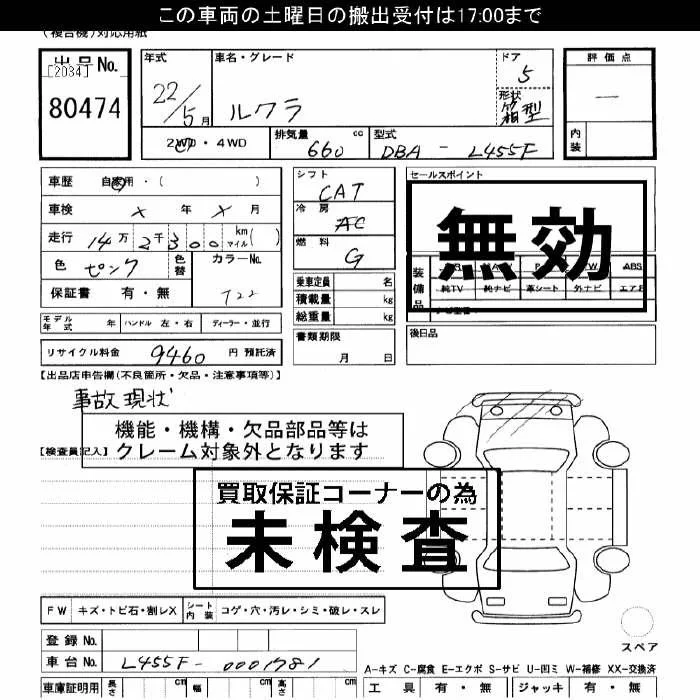 この車両の土曜日の搬出受付は17:00まで
(複合機)対応用紙
出品No.
[2034]
80474
年式
22/5月
車名・グレード
ルクラ
ドア
5
形状
箱型
評価点
—
内装
2WD・4WD
排気量 660 cc
型式 DBA - L455F
車歴 自家用・( )
車検 × 年 × 月
走行 14万2千300 km マイル( )
色 ピンク
色替
カラーNo.
T22
保証書 有・無
シフト
CAT
冷房
AC
燃料
G
乗車定員 名
積載量 kg
総重量 kg
セールスポイント
無効
装備品
ABS
純TV 純ナビ 革シート 外ナビ エアB
モデル年式 年 ハンドル 左・右 ディーラー・並行
書類期限
月 日
後日品
リサイクル料金 9460 円 預託済
【出品店申告欄(不良箇所・欠品・注意事項等)】
事故現状
機能・機構・欠品部品等は
クレーム対象外となります
【検査員記入】
買取保証コーナーの為
未検査
FW キズ・トビ石・割レX
シート内装 コゲ・穴・汚レ・シミ・破レ・スレ
登録No.
車台No. L455F-0001781
スペア
A-キズ C-腐食 E-エクボ S-サビ U-凹ミ W-補修 XX-交換済
車庫証明用 長さ cm 幅 cm 高さ cm
工具 有・無 ジャッキ 有・無